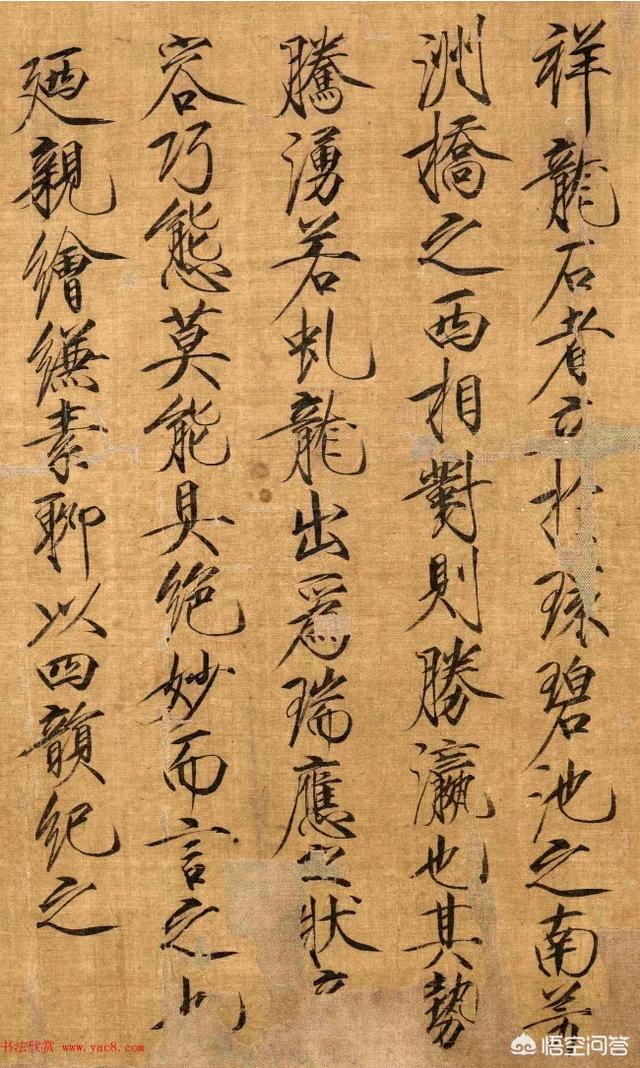 祥龍石者於環碧池之南芳
洲橋之西相對則勝瀛也其勢
騰湧若虬龍出爲瑞應之狀
容巧態莫能具絕妙而言之也
廼親繪縑素聊以四韻紀之
书法欣赏 www.yac8.com
悟空问答